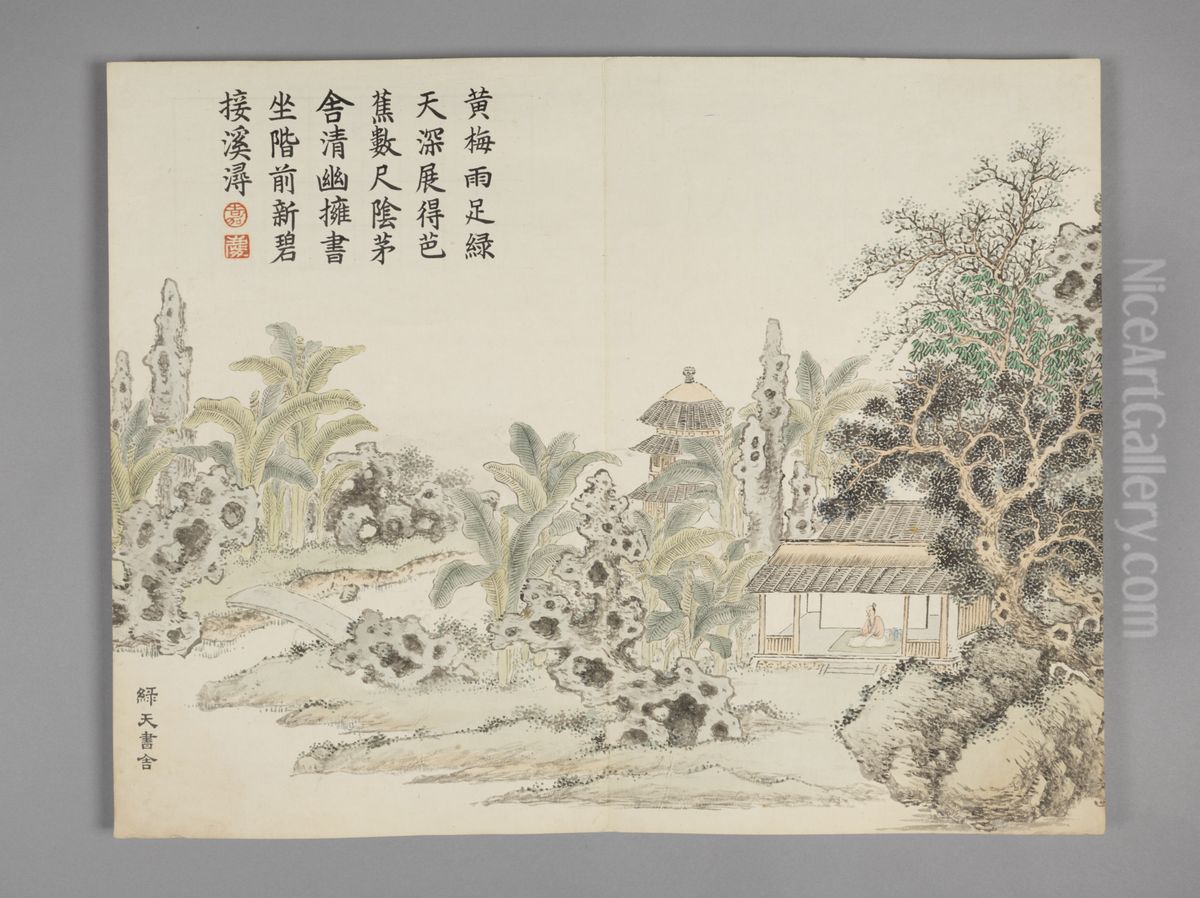 黄梅雨足緑
天深展得芭
蕉數尺陰茅
舎清幽擁書
坐階前新碧
接溪潯
緑天書舎
NiceArtGallery.com